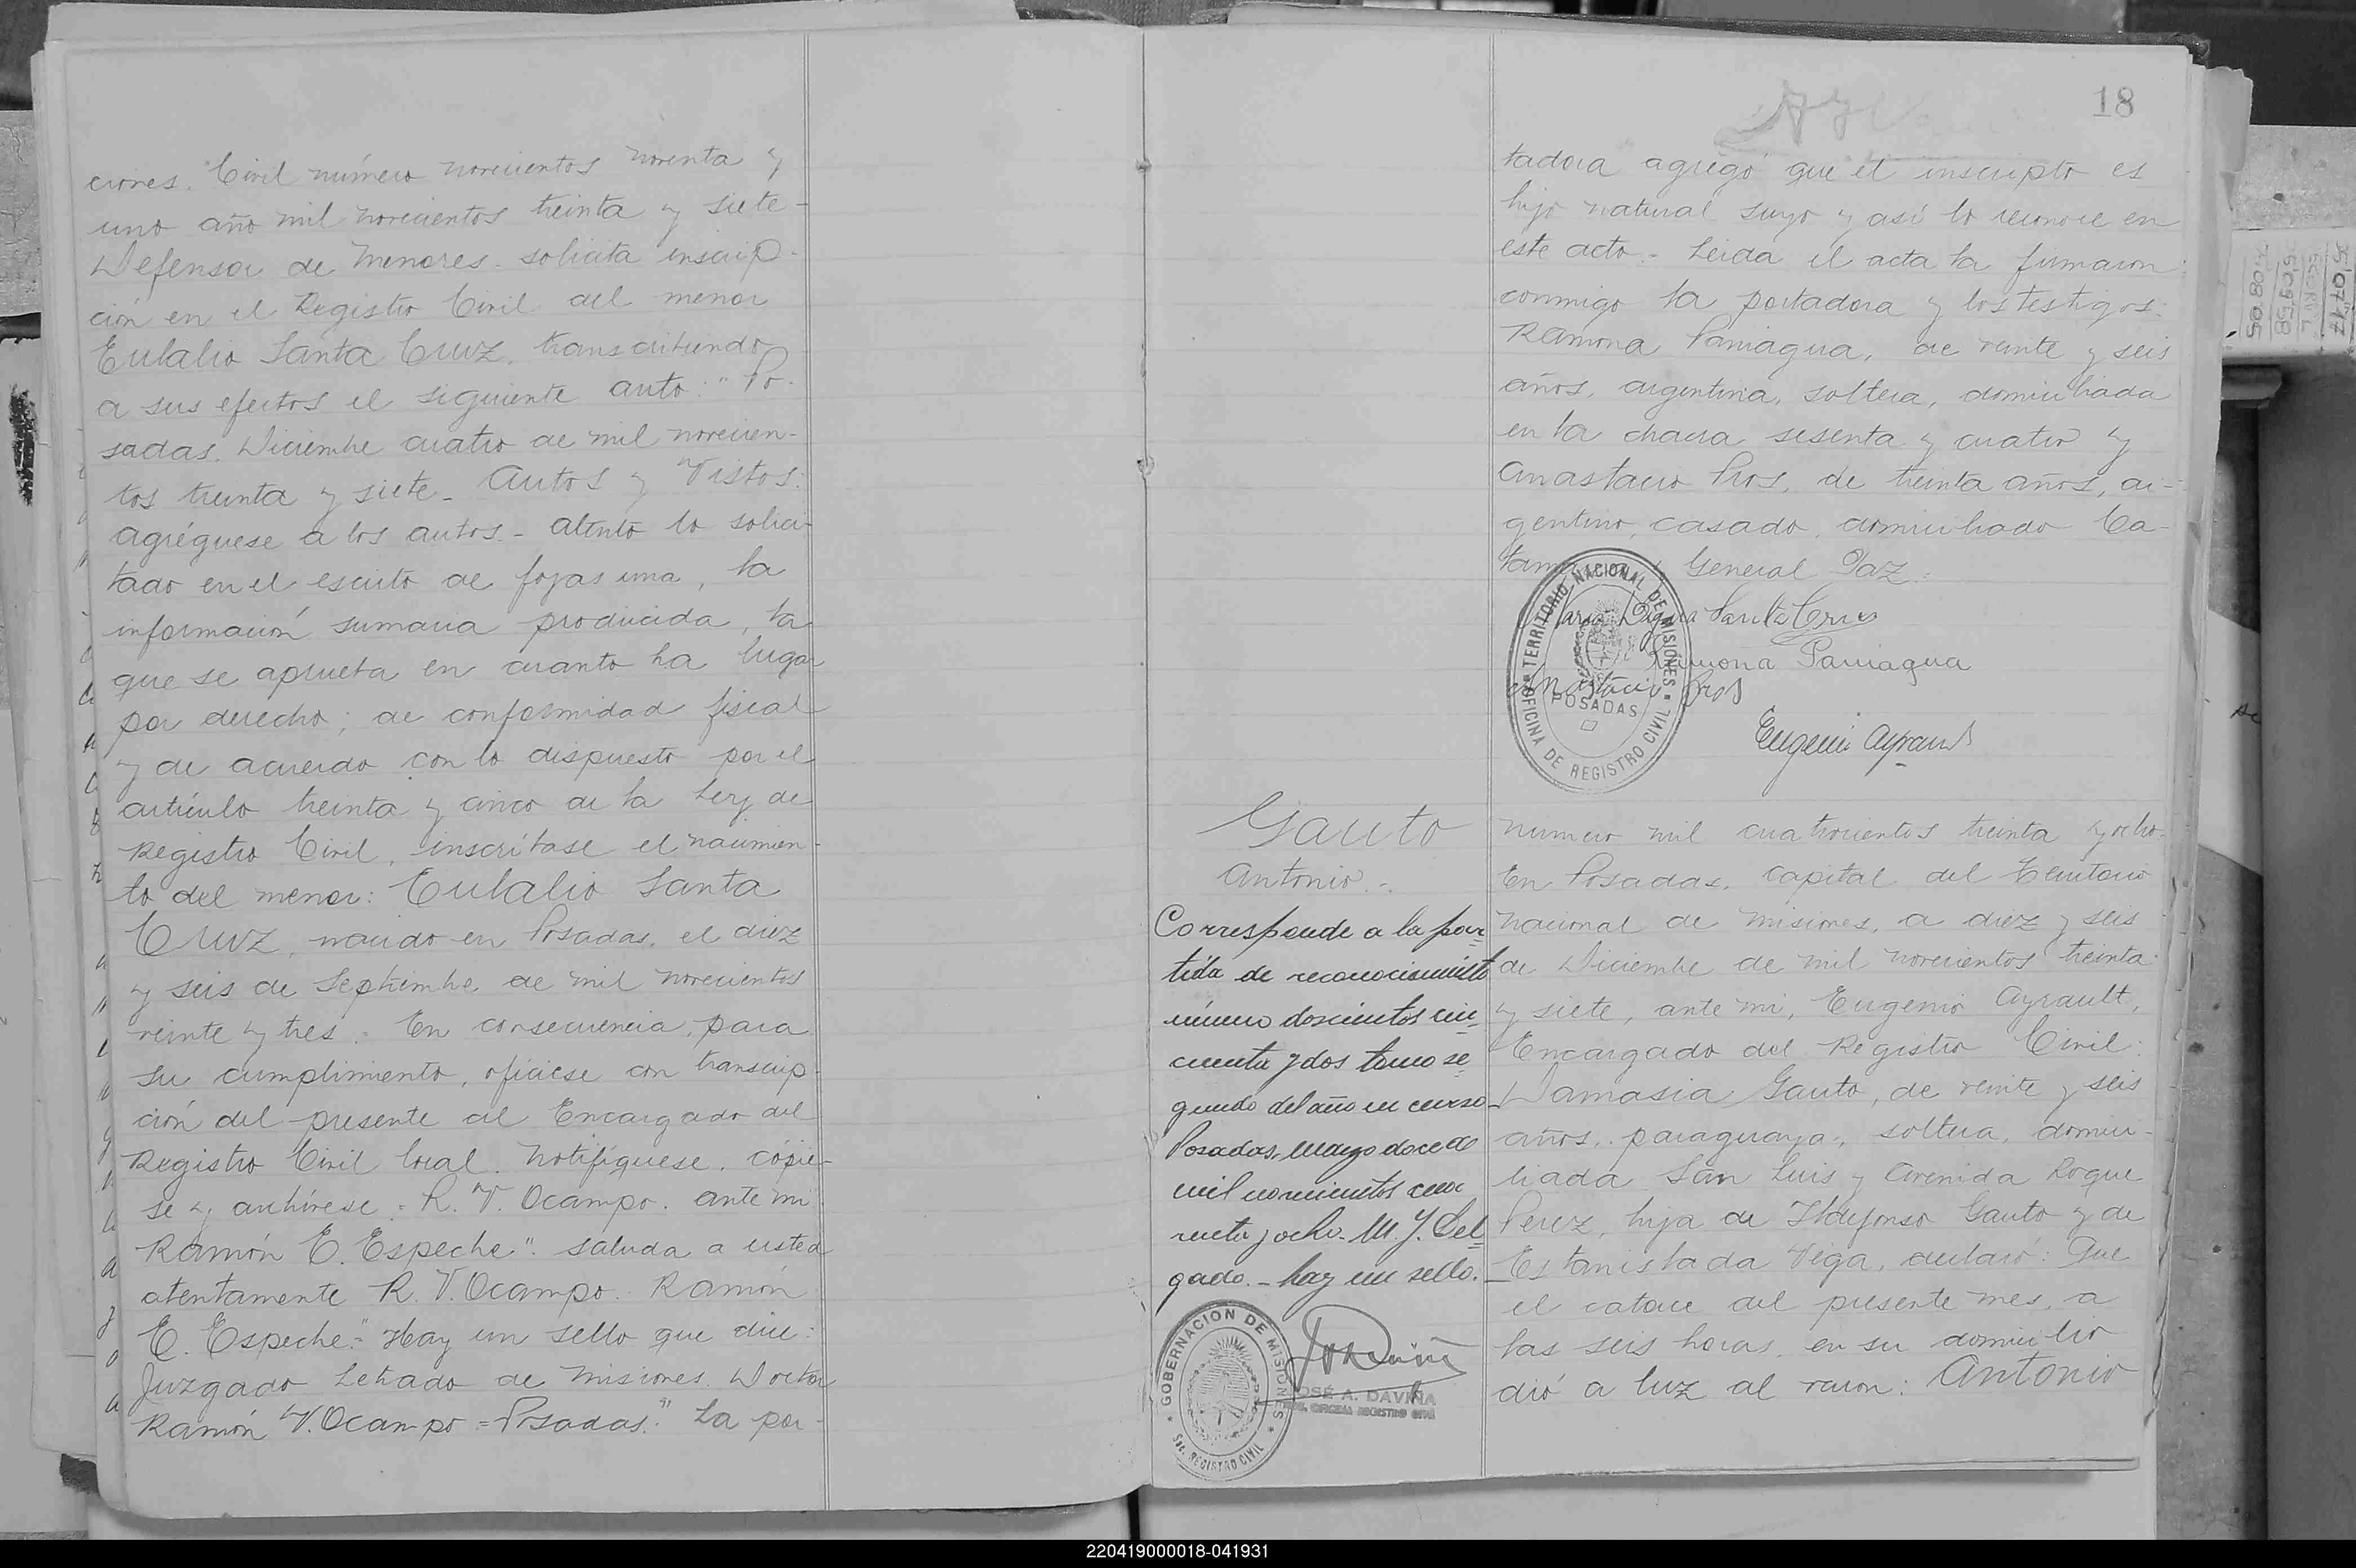 ciones. Civil número novecientos noventa y
uno año mil novecientos treinta y siete-
Defensor de Menores solicita inscrip-
ción en el Registro Civil del menor
Eulalio Santa Cruz, transcribiendo
a sus efectos el siguiente auto: "Po-
sadas, Diciembre cuatro de mil novecien-
tos treinta y siete- Autos y Vistos:
agréguese a los autos.- atento lo solici-
tado en el escrito de fojas una, la
información sumaria producida, la
que se aprueba en cuanto ha lugar
por derecho; de conformidad fiscal
y de acuerdo con lo dispuesto por el
artículo treinta y cinco de la Ley de
Registro Civil, inscríbase el nacimien-
to del menor: Eulalio Santa
Cruz, nacido en Posadas, el diez
y seis de Septiembre de mil novecientos
veinte y tres. En consecuencia, para
su cumplimiento, ofíciese con transcrip-
ción del presente al Encargado del
Registro Civil local. Notifíquese, cópie-
se y archívese. R. V. Ocampo. ante mi
Ramón E. Espeche". Saluda a usted
atentamente R. V. Ocampo. Ramón
E. Espeche." Hay un sello que dice:
Juzgado Letrado de Misiones. Doctor
Ramón V. Ocampo = Posadas." La por-
18
tadora agregó que el inscripto es
hijo natural suyo y así lo reconoce en
este acto.- Leida el acta la firmaron
conmigo la portadora y los testigos:
Ramona Paniagua, de veinte y seis
años, argentina, soltera, domiciliada
en la chacra sesenta y cuatro y
Anastacio Pros, de treinta años, ar-
gentino, casado, domiciliado Ca-
General Paz.
Santa Cruz
Ramona Paniagua
Anastacio Pros
Eugenio Ayrault
TERRITORIO NACIONAL DE MISIONES
POSADAS
OFICINA DE REGISTRO CIVIL
Gauto
Antonio.-
Corresponde a la par-
tida de reconocimiento
número doscientos cin-
cuenta y dos tomo se-
gundo del año en curso-
Posadas, mayo doce de
mil novecientos cua-
renta y ocho. M. J. Del-
gado.- hay un sello.
GOBERNACION DE MISIONES
Sec. REGISTRO CIVIL
JOSÉ A. DAVIÑA
numero mil cuatrocientos treinta y ocho-
En Posadas, capital del Territorio
Nacional de Misiones, a diez y seis
de Diciembre de mil novecientos treinta
y siete, ante mi, Eugenio Ayrault,
Encargado del Registro Civil:
Damasia Gauto, de veinte y seis
años, paraguaya, soltera, domici-
liada San Luis y Avenida Roque
Perez, hija de Ildefonso Gauto y de
Estanislada Vega, declaró: Que
el catorce del presente mes, a
las seis horas, en su domicilio
dió a luz al varon: Antonio
220419000018-041931